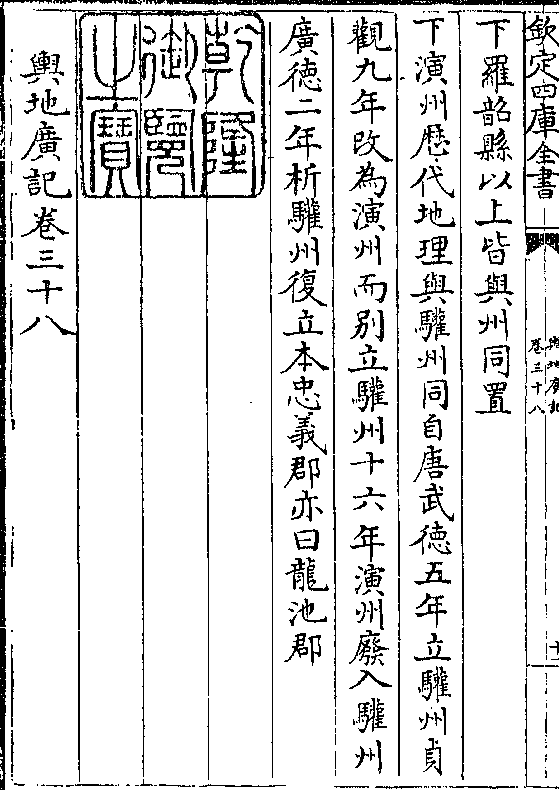 欽定四庫全書
輿地廣記
卷三十八
十
下羅韶縣以上皆與州同置
下演州歴代地理與驩州同自唐武徳五年立驩州貞
觀九年改為演州而别立驩州十六年演州廢入驩州
廣徳二年析驩州復立本忠義郡亦曰龍池郡
乾隆
御覽
之寶
輿地廣記卷三十八